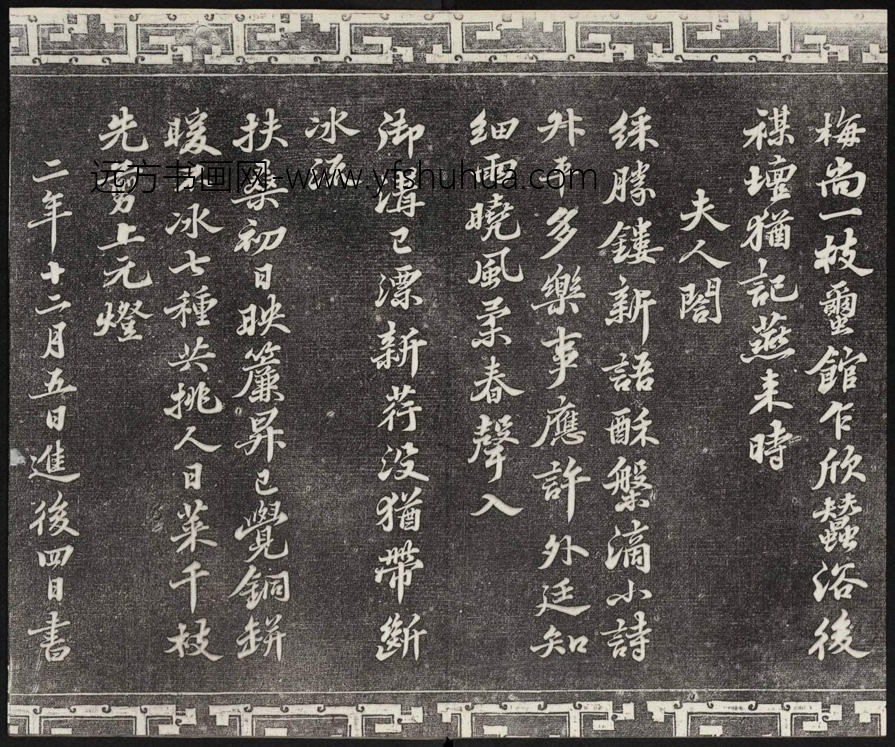 梅尚一枝蠒館乍欣蠶浴後
禖壇猶記燕来時
夫人閤
綵勝鏤新語酥槃滴小詩
升平多樂事應許外廷知
細雨曉風柔春聲入
御溝已漂新荇没猶帶斷
冰流
扶桑初日映簾昇已覺銅缾
暖不冰七種共挑人日菜千枝
先剪上元燈
二年十二月五日進後四日書
远方书画网-www.yfshuhua.com